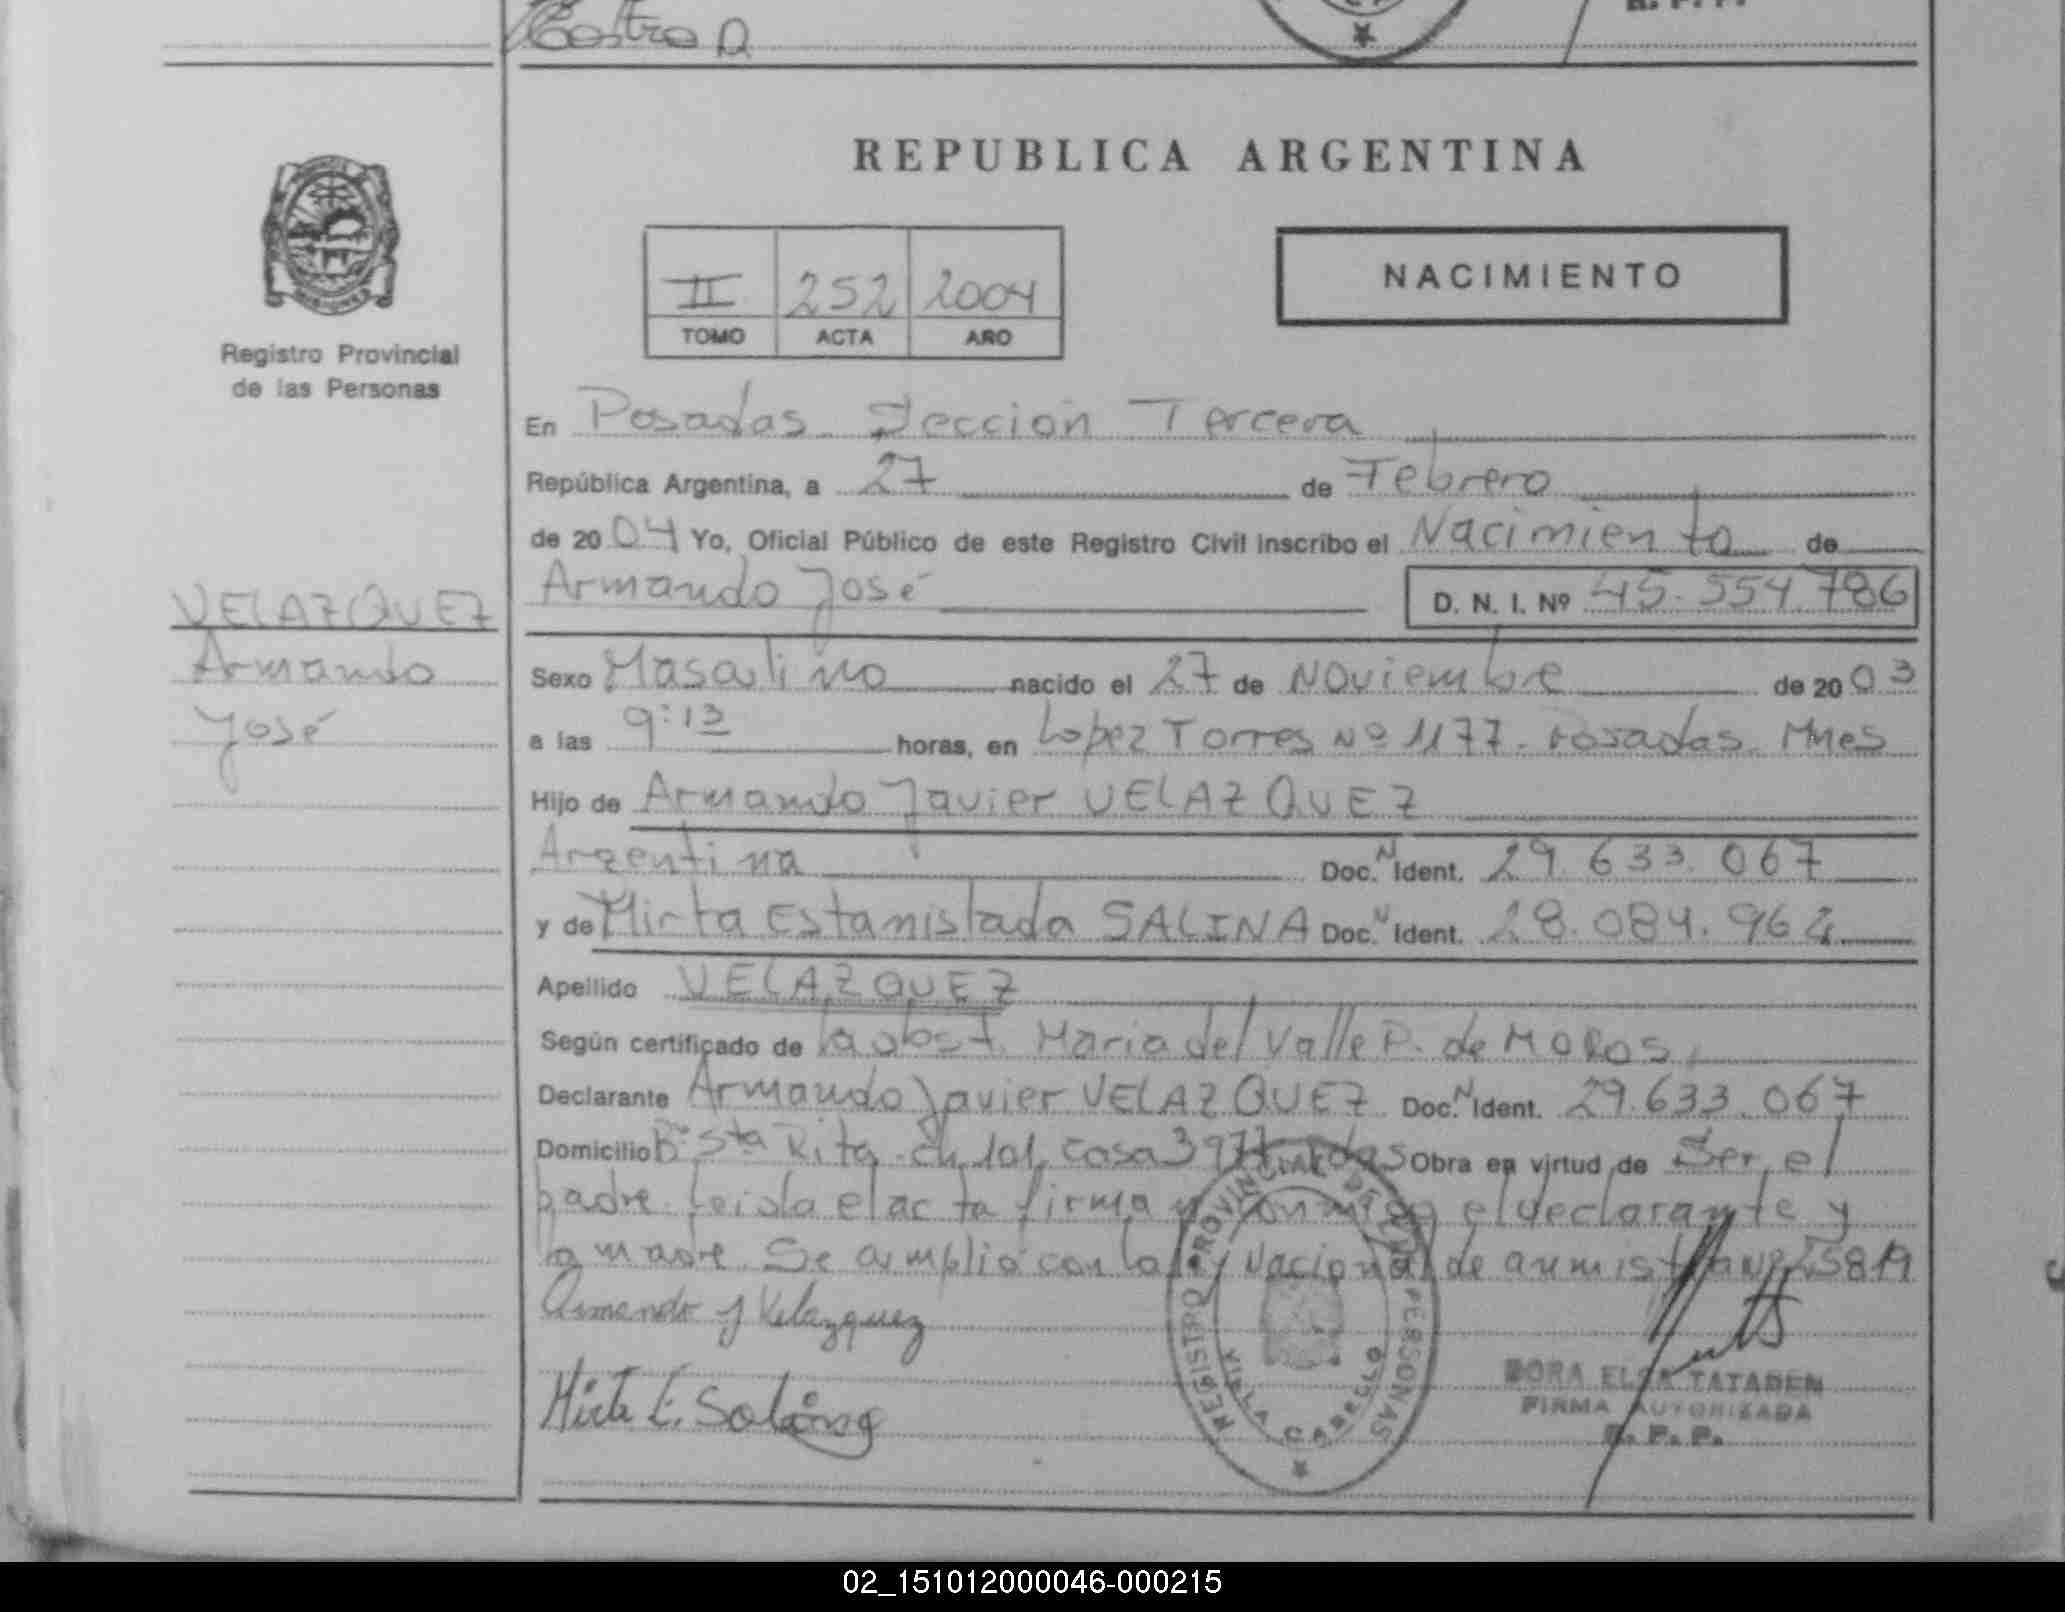 Castro D
R. P. P.
REPUBLICA ARGENTINA
II 252 2004
TOMO ACTA AÑO
NACIMIENTO
Registro Provincial
de las Personas
VELAZQUEZ
Armando
José
En Posadas Sección Tercera
República Argentina, a 27 de Febrero
de 2004 Yo, Oficial Público de este Registro Civil inscribo el Nacimiento de
Armando José D. N. I. Nº 45.554.786
Sexo Masculino nacido el 27 de Noviembre de 2003
a las 9:13 horas, en Lopez Torres Nº 1177. Posadas. Mnes
Hijo de Armando Javier VELAZQUEZ
Argentina Doc. N Ident. 29.633.067
y de Mirta Estanislada SALINA Doc. N Ident. 28.084.964
Apellido VELAZQUEZ
Según certificado de la obst. Maria del Valle P. de MOROS,
Declarante Armando Javier VELAZQUEZ Doc. N Ident. 29.633.067
Domicilio Bº Sta Rita. Ch. 101, casa 3977 Pdas Obra en virtud de Ser el
padre. Leida el acta firma y conmigo el declarante y
la madre. Se cumplió con la ley Nacional de amnistia Nº 25819
Armando J Velazquez
Mirta E. Salina
REGISTRO PROVINCIAL DE LAS PERSONAS
VILLA CABELLO
DORA ELSA TATAREN
FIRMA AUTORIZADA
R. P. P.
02_151012000046-000215